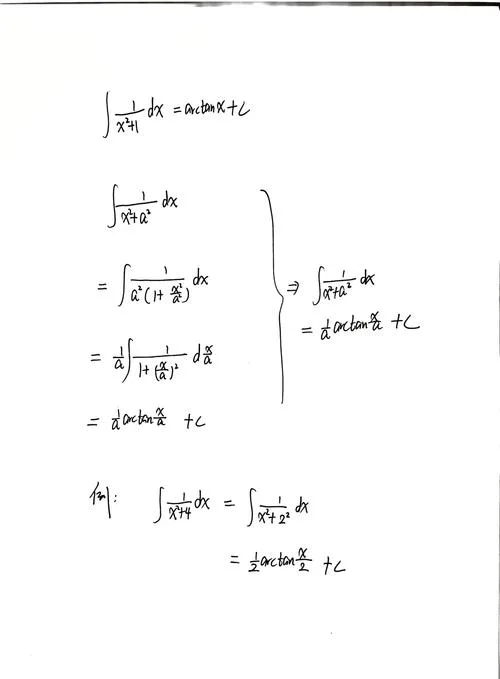 ∫ 1/(x²+1) dx = arctanx + C
∫ 1/(x²+a²) dx
= ∫ 1/(a²(1+x²/a²)) dx
= 1/a ∫ 1/(1+(x/a)²) d x/a
= 1/a arctan x/a + C
⇒ ∫ 1/(x²+a²) dx
= 1/a arctan x/a + C
例: ∫ 1/(x²+4) dx = ∫ 1/(x²+2²) dx
= 1/2 arctan x/2 + C